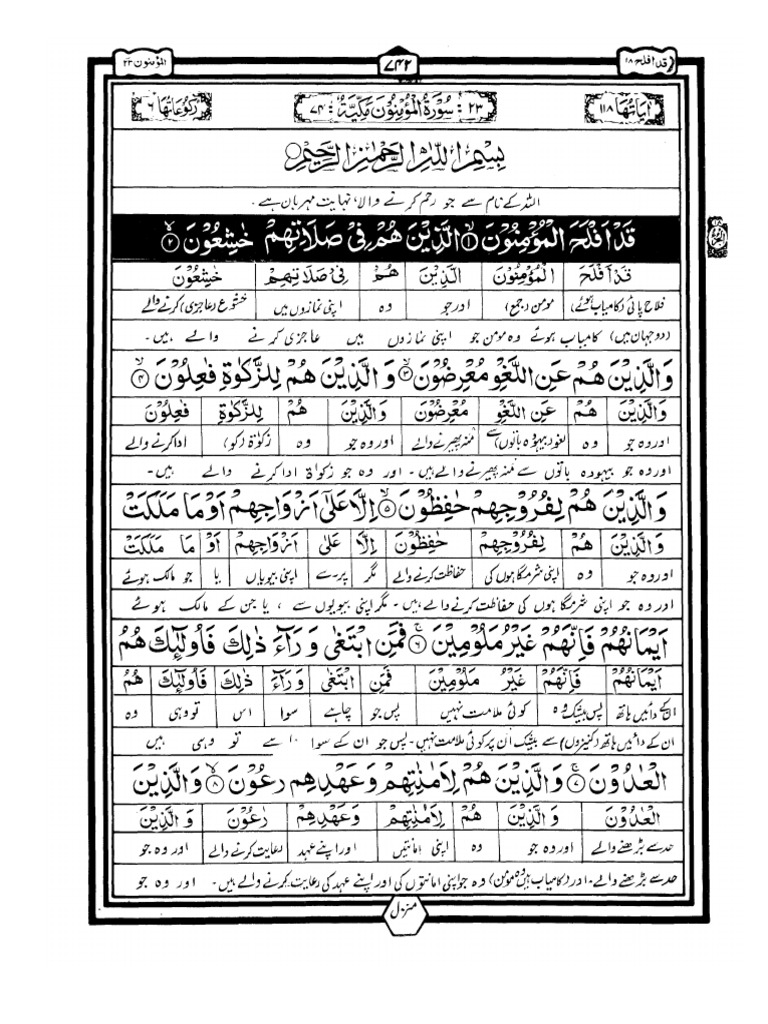 قد افلح ۱۸
۷۴۲
المؤمنون ۲۳
اٰیَاتُهَا ۱۱۸
۲۳: سُوْرَةُ الْمُؤْمِنُوْنَ مَكِّيَّةٌ: ۷۴
رُكُوْعَاتُهَا ۶
بِسْمِ اللّٰهِ الرَّحْمٰنِ الرَّحِيْمِ
اللہ کے نام سے جو رحم کرنے والا، نہایت مہربان ہے۔
قَدْ اَفْلَحَ الْمُؤْمِنُوْنَ ۱ الَّذِيْنَ هُمْ فِيْ صَلَاتِهِمْ خٰشِعُوْنَ ۲
قَدْ اَفْلَحَ الْمُؤْمِنُوْنَ الَّذِيْنَ هُمْ فِيْ صَلَاتِهِمْ خٰشِعُوْنَ
فلاح پائی (کامیاب ہوئے) مومن (جمع) اور جو وہ اپنی نمازوں میں خشوع (عاجزی) کرنے والے
(دو جہان میں) کامیاب ہوئے وہ مومن جو اپنی نمازوں میں عاجزی کرنے والے ہیں۔
وَالَّذِيْنَ هُمْ عَنِ اللَّغْوِ مُعْرِضُوْنَ ۳ وَالَّذِيْنَ هُمْ لِلزَّكٰوةِ فٰعِلُوْنَ ۴
وَالَّذِيْنَ هُمْ عَنِ اللَّغْوِ مُعْرِضُوْنَ وَالَّذِيْنَ هُمْ لِلزَّكٰوةِ فٰعِلُوْنَ
اور وہ جو وہ لغو (بیہودہ باتوں) سے منہ پھیرنے والے اور وہ جو وہ زکوٰۃ (کو) ادا کرنے والے
اور وہ جو بیہودہ باتوں سے منہ پھیرنے والے ہیں۔ اور وہ جو زکوٰۃ ادا کرنے والے ہیں۔
وَالَّذِيْنَ هُمْ لِفُرُوْجِهِمْ حٰفِظُوْنَ ۵ اِلَّا عَلٰٓى اَزْوَاجِهِمْ اَوْ مَا مَلَكَتْ
وَالَّذِيْنَ هُمْ لِفُرُوْجِهِمْ حٰفِظُوْنَ اِلَّا عَلٰٓى اَزْوَاجِهِمْ اَوْ مَا مَلَكَتْ
اور وہ جو وہ اپنی شرمگاہوں کی حفاظت کرنے والے مگر پر۔سے اپنی بیویاں یا جو مالک ہوئے
اور وہ جو اپنی شرمگاہوں کی حفاظت کرنے والے ہیں۔ مگر اپنی بیویوں سے، یا جن کے مالک ہوئے
اَيْمَانُهُمْ فَاِنَّهُمْ غَيْرُ مَلُوْمِيْنَ ۶ فَمَنِ ابْتَغٰى وَرَآءَ ذٰلِكَ فَاُولٰٓئِكَ هُمُ
اَيْمَانُهُمْ فَاِنَّهُمْ غَيْرُ مَلُوْمِيْنَ فَمَنِ ابْتَغٰى وَرَآءَ ذٰلِكَ فَاُولٰٓئِكَ هُمُ
ان کے دائیں ہاتھ پس بیشک وہ کوئی ملامت نہیں پس جو چاہے سوا اس تو وہی وہ
ان کے دائیں ہاتھ (کنیزوں) سے بیشک ان پر کوئی ملامت نہیں۔ پس جو ان کے سوا سے تو وہی ہیں
الْعٰدُوْنَ ۷ وَالَّذِيْنَ هُمْ لِاَمٰنٰتِهِمْ وَعَهْدِهِمْ رٰعُوْنَ ۸ وَالَّذِيْنَ
الْعٰدُوْنَ وَالَّذِيْنَ هُمْ لِاَمٰنٰتِهِمْ وَعَهْدِهِمْ رٰعُوْنَ وَالَّذِيْنَ
حد سے بڑھنے والے اور وہ جو وہ اپنی امانتیں اور اپنے عہد رعایت کرنے والے اور وہ جو
حد سے بڑھنے والے۔ اور (کامیاب ہیں وہ مومن) وہ جو اپنی امانتوں کی اور اپنے عہد کی رعایت کرنے والے ہیں۔ اور وہ جو
منزل